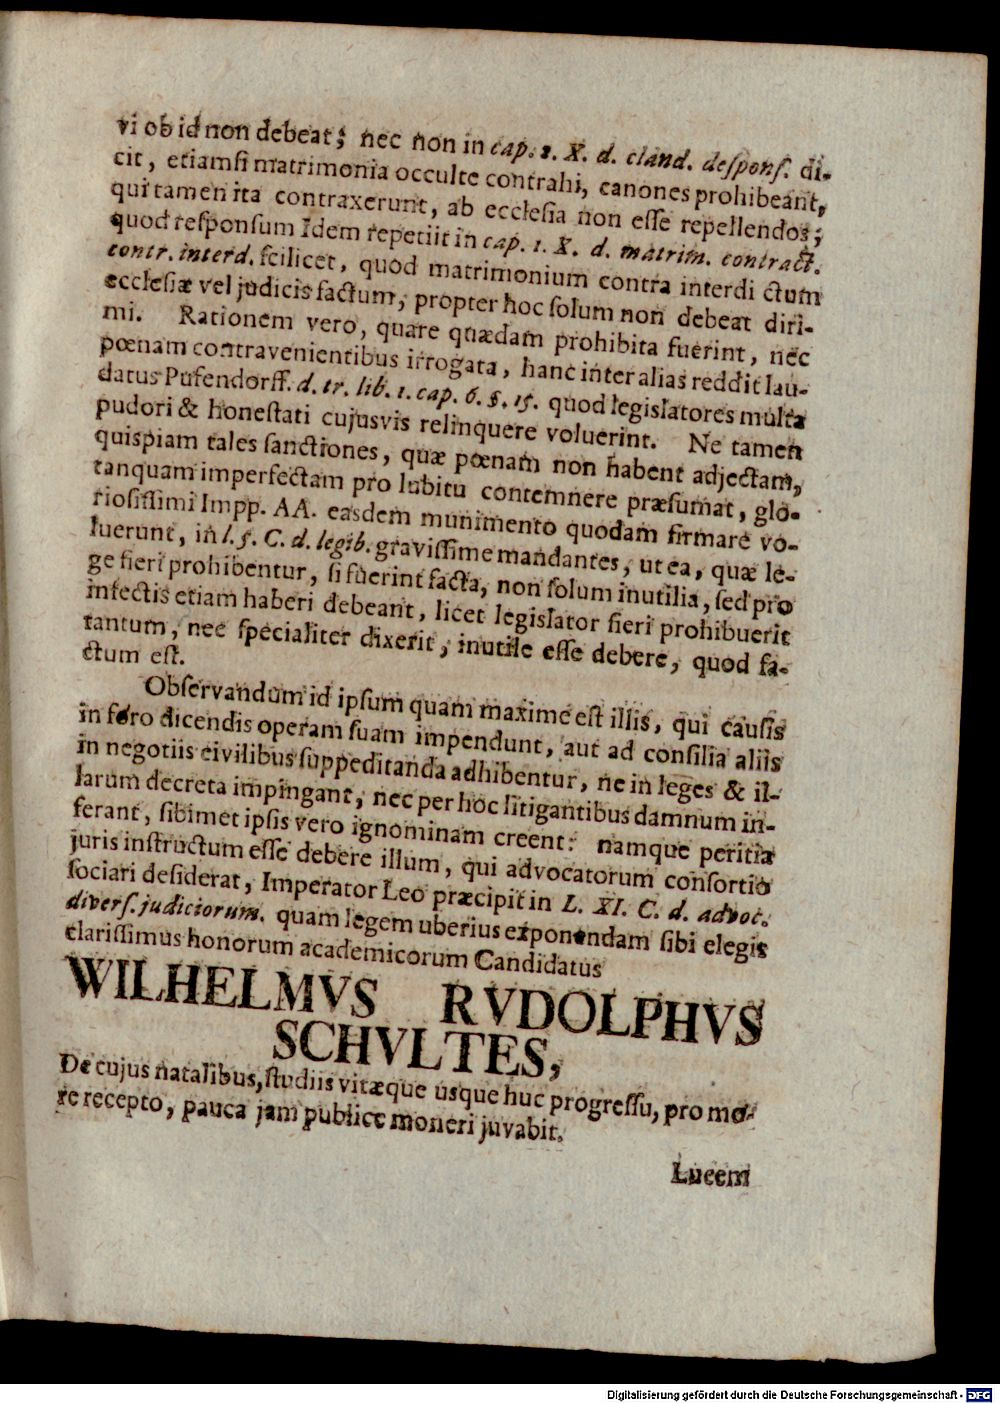 vi ob id non debeat; nec non in cap. 2. X. d. cland. desponſ. di-
cit, etiamſi matrimonia occulte contrahi, canones prohibeant,
qui tamen ita contraxerunt, ab eccleſia non eſſe repellendos;
quod reſponſum Idem repetiit in cap. 1. X. d. matrim. contract.
contr. interd. ſcilicet, quod matrimonium contra interdi ctum
eccleſiæ vel judicis factum, propter hoc ſolum non debeat diri-
mi. Rationem vero, quare quædam prohibita fuerint, nec
pœnam contravenientibus irrogata, hanc inter alias reddit lau-
datus Pufendorff. d. tr. lib. 1. cap. 6. §. 15. quod legislatores multa
pudori & honeſtati cujusvis relinquere voluerint. Ne tamen
quispiam tales ſanctiones, quæ pœnam non habent adjectam,
tanquam imperfectam pro lubitu contemnere præſumat, glo-
rioſiſſimi Impp. AA. easdem munimento quodam firmare vo-
luerunt, in l. 5. C. d. legib. graviſſime mandantes, ut ea, quæ le-
ge fieri prohibentur, ſi fuerint facta, non ſolum inutilia, ſed pro
infectis etiam haberi debeant, licet legislator fieri prohibuerit
tantum, nec ſpecialiter dixerit, inutile eſſe debere, quod fa-
ctum eſt.
Obſervandum id ipſum quam maxime eſt illis, qui cauſis
in foro dicendis operam ſuam impendunt, aut ad conſilia aliis
in negotiis civilibus ſuppeditanda adhibentur, ne in leges & il-
larum decreta impingant, nec per hoc litigantibus damnum in-
ferant, ſibimet ipſis vero ignominam creent: namque peritia
juris inſtructum eſſe debere illum, qui advocatorum conſortio
ſociari deſiderat, Imperator Leo præcipit in L. XI. C. d. advoc.
diverſ. judiciorum. quam legem uberius exponendam ſibi elegit
clariſſimus honorum academicorum Candidatus
WILHELMVS RVDOLPHVS
SCHVLTES,
De cujus natalibus, ſtudiis vitæque usque huc progreſſu, pro mo-
re recepto, pauca jam publice moneri juvabit.
Lucem
Digitalisierung gefördert durch die Deutsche Forschungsgemeinschaft - DFG